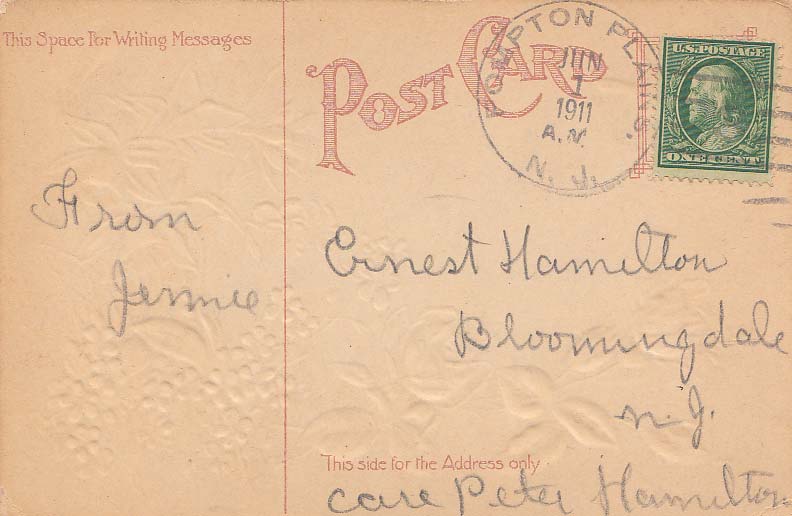 This Space For Writing Messages
POST CARD
POMPTON PLAINS.
JUN
1
1911
A.M.
N. J.
U.S. POSTAGE
ONE CENT
From
Jennie
Ernest Hamilton
Bloomingdale
N. J.
This side for the Address only
care Peter Hamilton